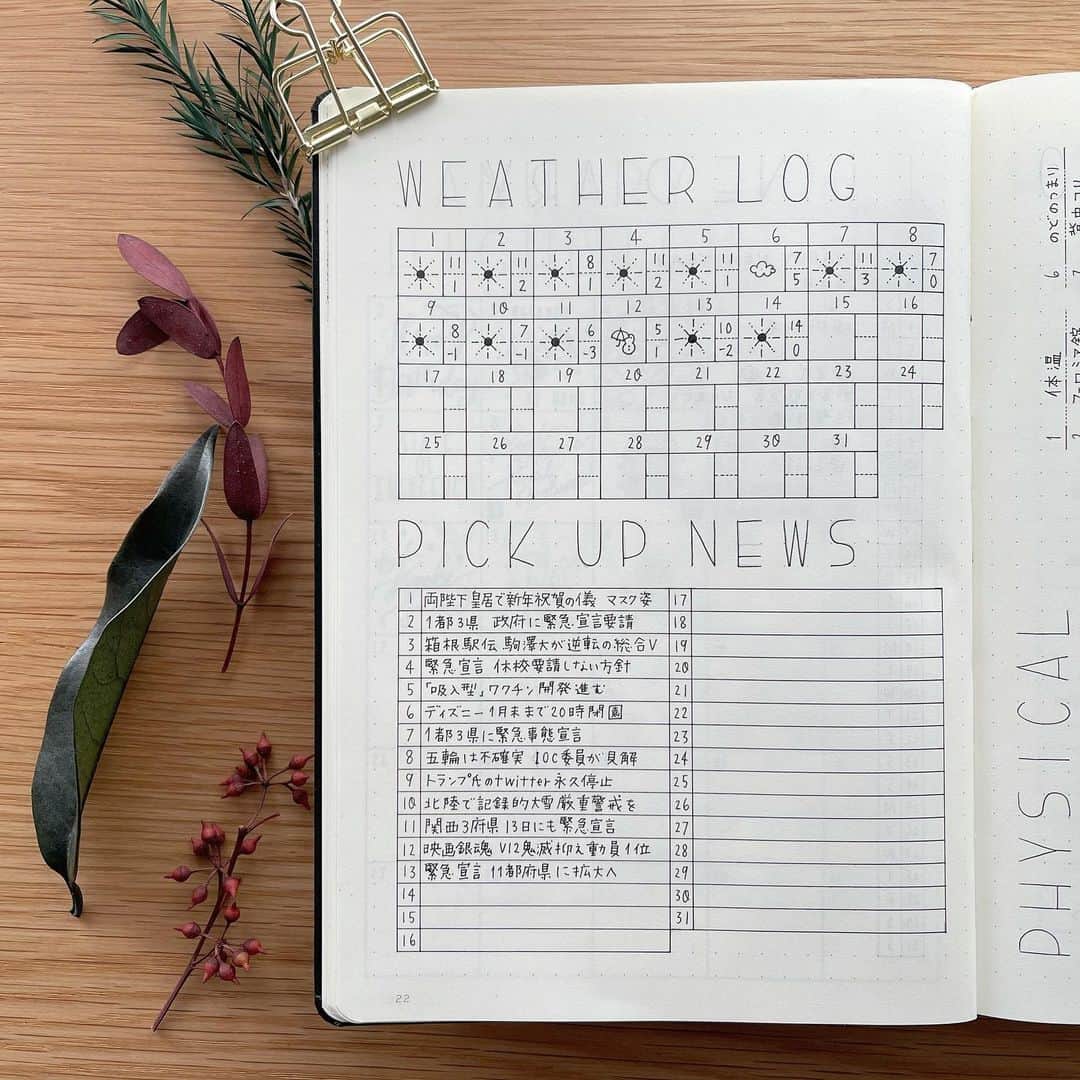 WEATHER LOG
1 2 3 4 5 6 7 8
11 1 11 2 8 1 11 2 11 1 7 5 11 3 7 0
9 10 11 12 13 14 15 16
8 -1 7 -1 6 -3 5 1 10 -2 14 0
17 18 19 20 21 22 23 24
25 26 27 28 29 30 31
PICK UP NEWS
1 両陛下皇居で新年祝賀の儀 マスク姿
2 1都3県 政府に緊急宣言要請
3 箱根駅伝 駒澤大が逆転の総合V
4 緊急宣言 休校要請しない方針
5 「吸入型」ワクチン開発進む
6 ディズニー1月末まで20時閉園
7 1都3県に緊急事態宣言
8 五輪は不確実 IOC委員が見解
9 トランプ氏のtwitter永久停止
10 北陸で記録的大雪厳重警戒を
11 関西3府県13日にも緊急宣言
12 映画銀魂 V12鬼滅抑え動員1位
13 緊急宣言 11都府県に拡大へ
14
15
16
17
18
19
20
21
22
23
24
25
26
27
28
29
30
31
22
PHYSICAL
1 体温
6 のどのつまり